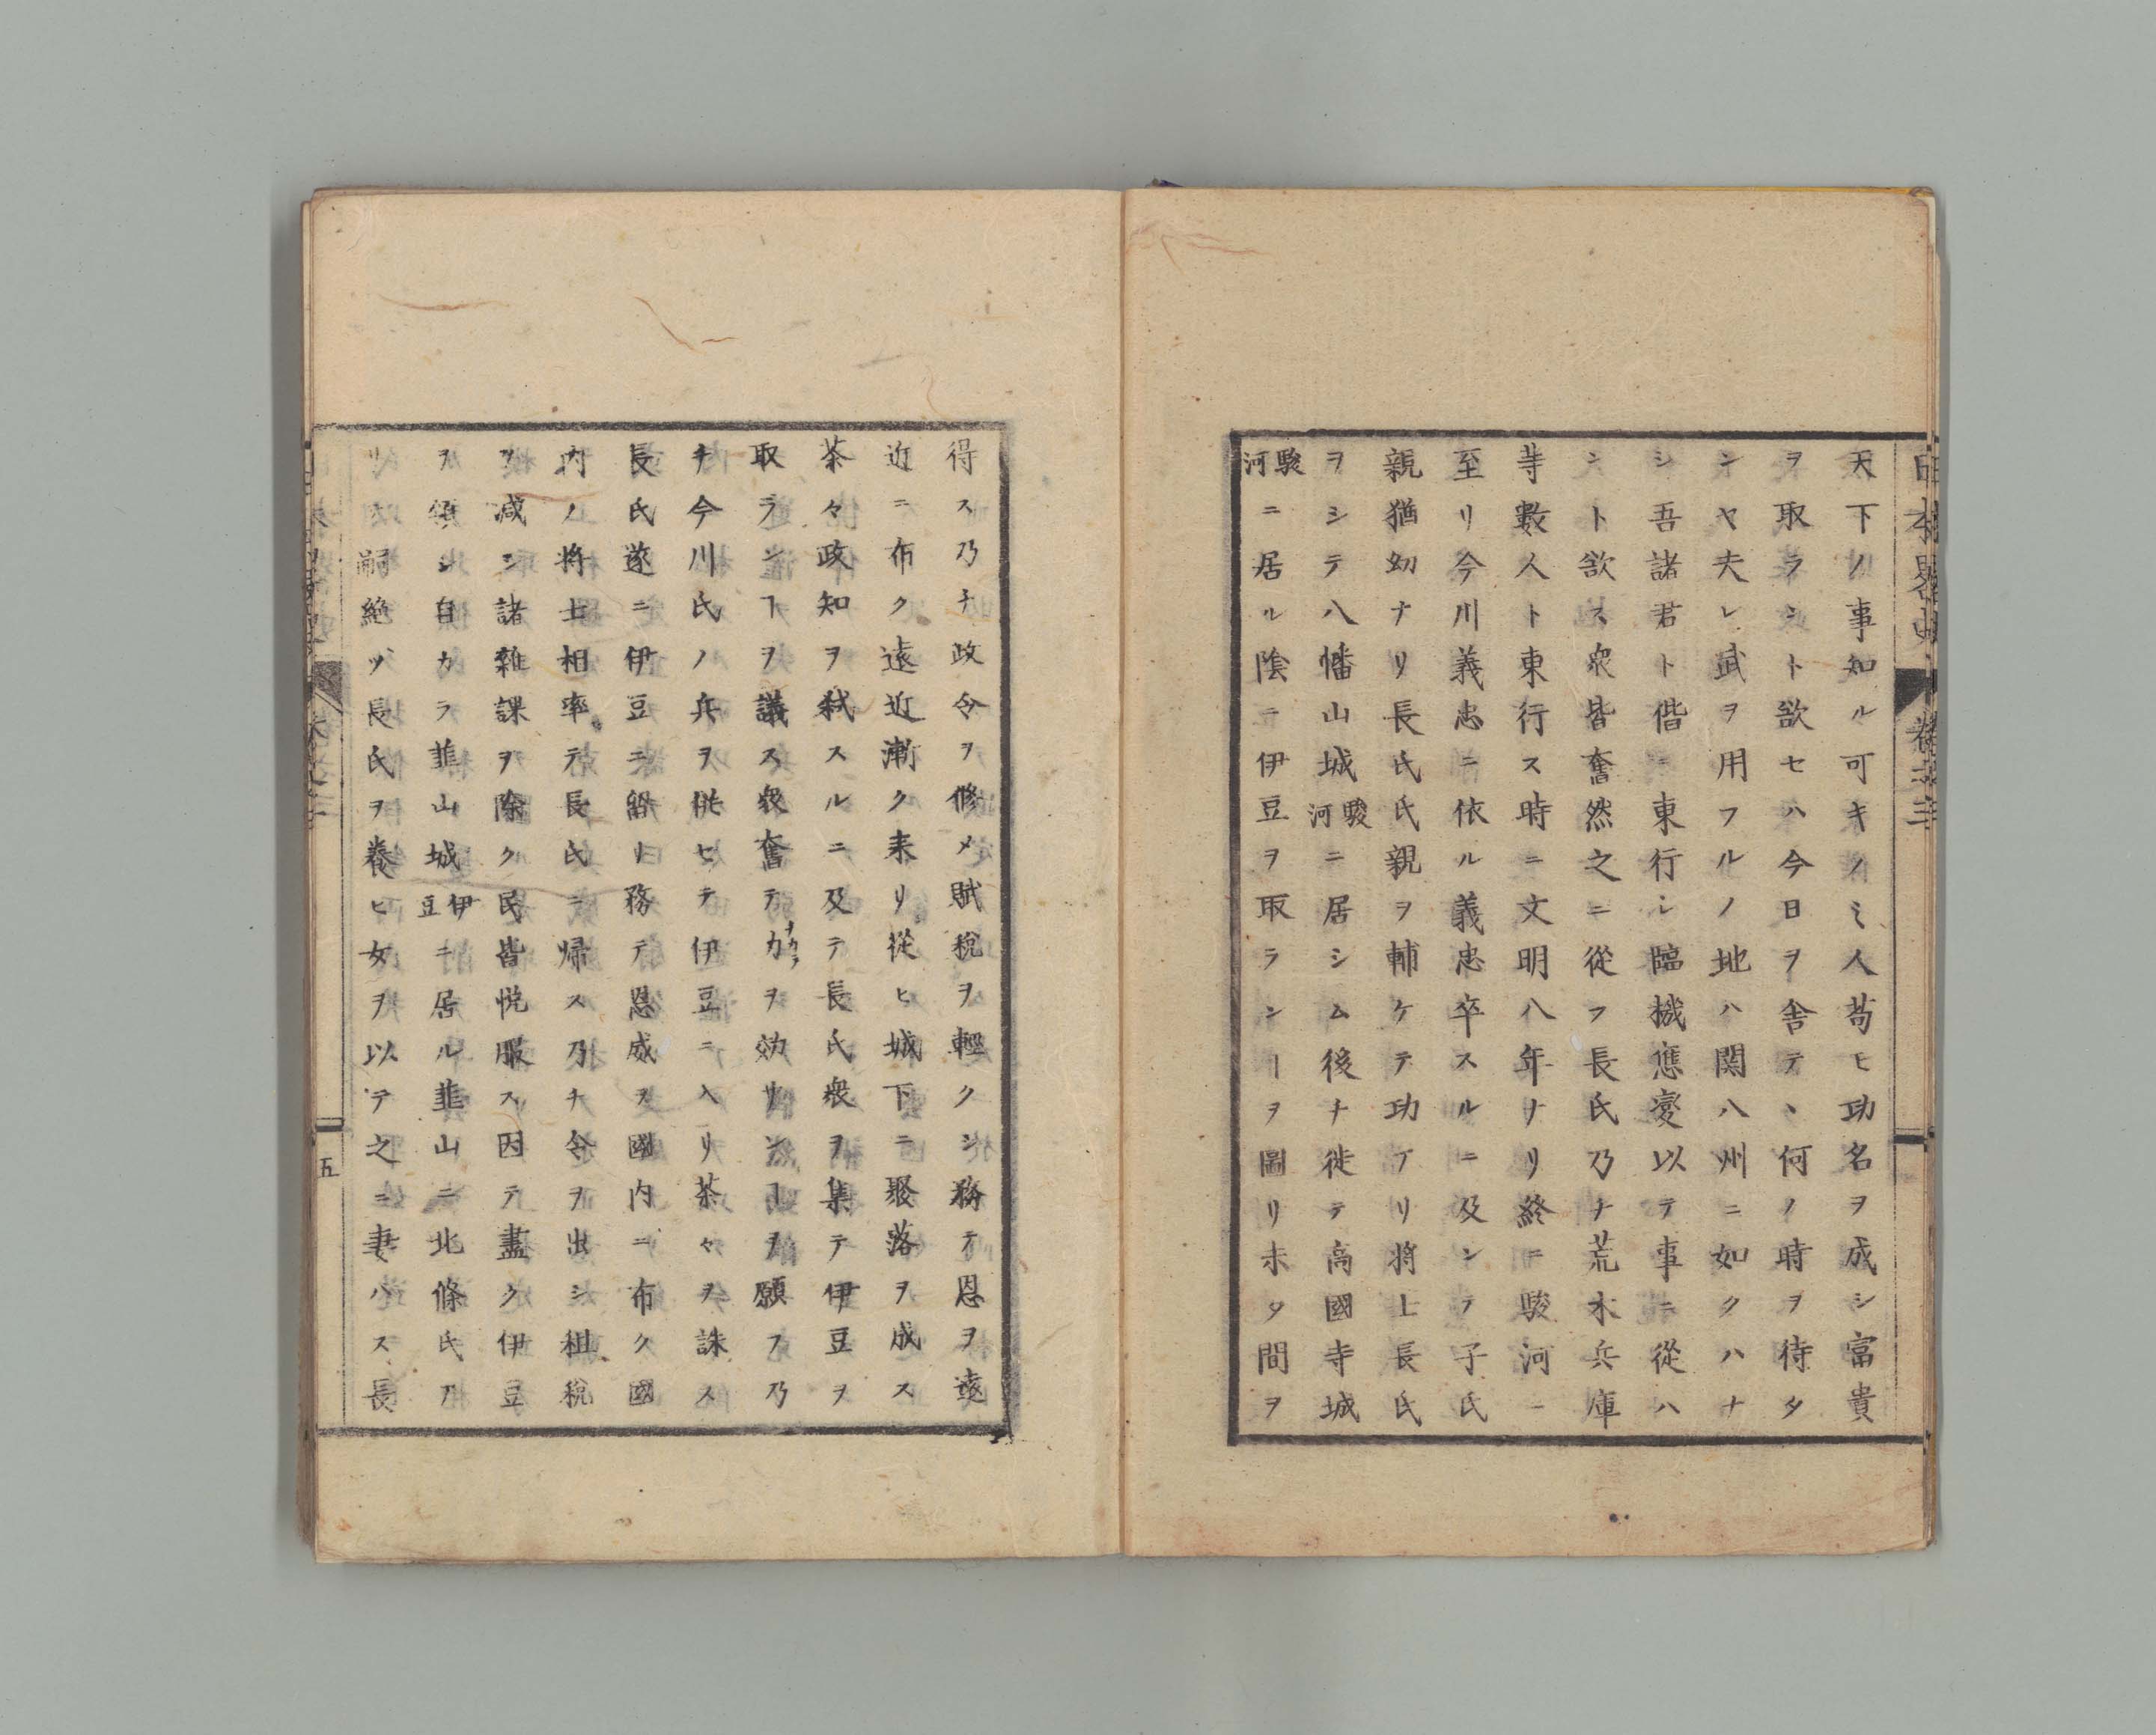 日本畧史 卷之三
天下ノ事知ル可キノミ人苟ヒ功名ヲ成シ富貴
ヲ取ラント欲セハ今日ヲ舎テヽ何ノ時ヲ待タ
ンヤ夫レ武ヲ用フルノ地ハ関八州ニ如クハナ
シ吾諸君ト偕ニ東行シ臨機應変以テ事ニ從ハ
ント欲ス衆皆奮然之ニ從フ長氏乃チ荒木兵庫
等數人ト東行ス時ニ文明八年ナリ終ニ駿河ニ
至リ今川義忠ニ依ル義忠卒スルニ及ンテ子氏
親猶幼ナリ長氏氏親ヲ輔ケテ功アリ將士長氏
ヲシテ八幡山城駿河ニ居シム後チ徙テ高國寺城
駿河ニ居ル陰ニ伊豆ヲ取ランヿヲ圖リ未タ間ヲ
得ス乃チ政令ヲ修メ賦税ヲ輕クシ務テ恩ヲ遠
近ニ布ク遠近漸ク来リ從ヒ城下ニ聚落ヲ成ス
茶々政知ヲ弑スルニ及テ長氏衆ヲ集テ伊豆ヲ
取ランヿヲ議ス衆奮テ力ヲ効サンヿヲ願フ乃
チ今川氏ノ兵ヲ併セテ伊豆ニ入リ茶々ヲ誅ス
長氏遂ニ伊豆ニ留リ務テ恩威ヲ國内ニ布ク國
内ノ将士相率テ長氏ニ帰ス乃チ令ヲ出シ租税
ヲ減シ諸雜課ヲ除ク民皆悦服ス因テ盡ク伊豆
ヲ領シ自カラ韮山城伊豆ニ居ル韮山ニ北條氏ア
リ嗣絶ツ長氏ヲ養ヒ女ヲ以テ之ニ妻ハス長
五